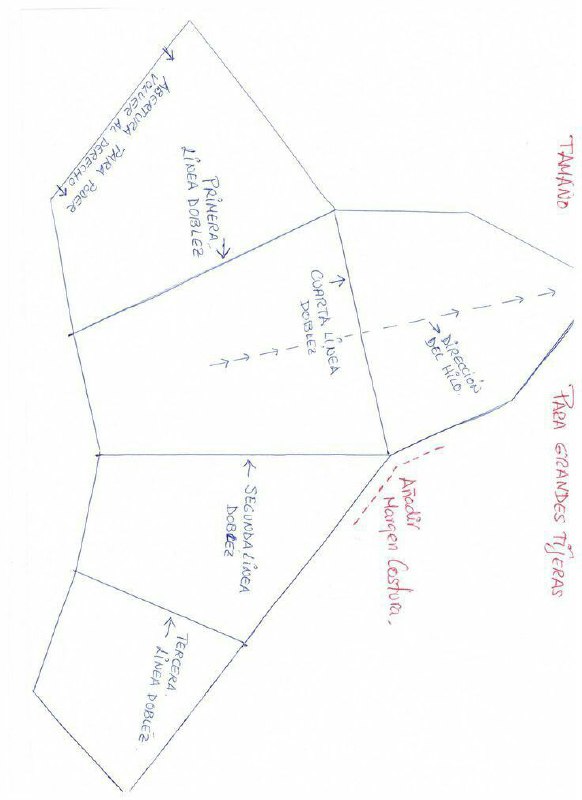 TAMAÑO
PARA GRANDES TIJERAS
ABERTURA PARA PODER
VOLVER AL DERECHO
PRIMERA
LÍNEA DOBLEZ
CUARTA LÍNEA
DOBLEZ
DIRECCIÓN
DEL HILO.
Añadir
Margen Costura.
SEGUNDA LÍNEA
DOBLEZ
TERCERA
LÍNEA DOBLEZ